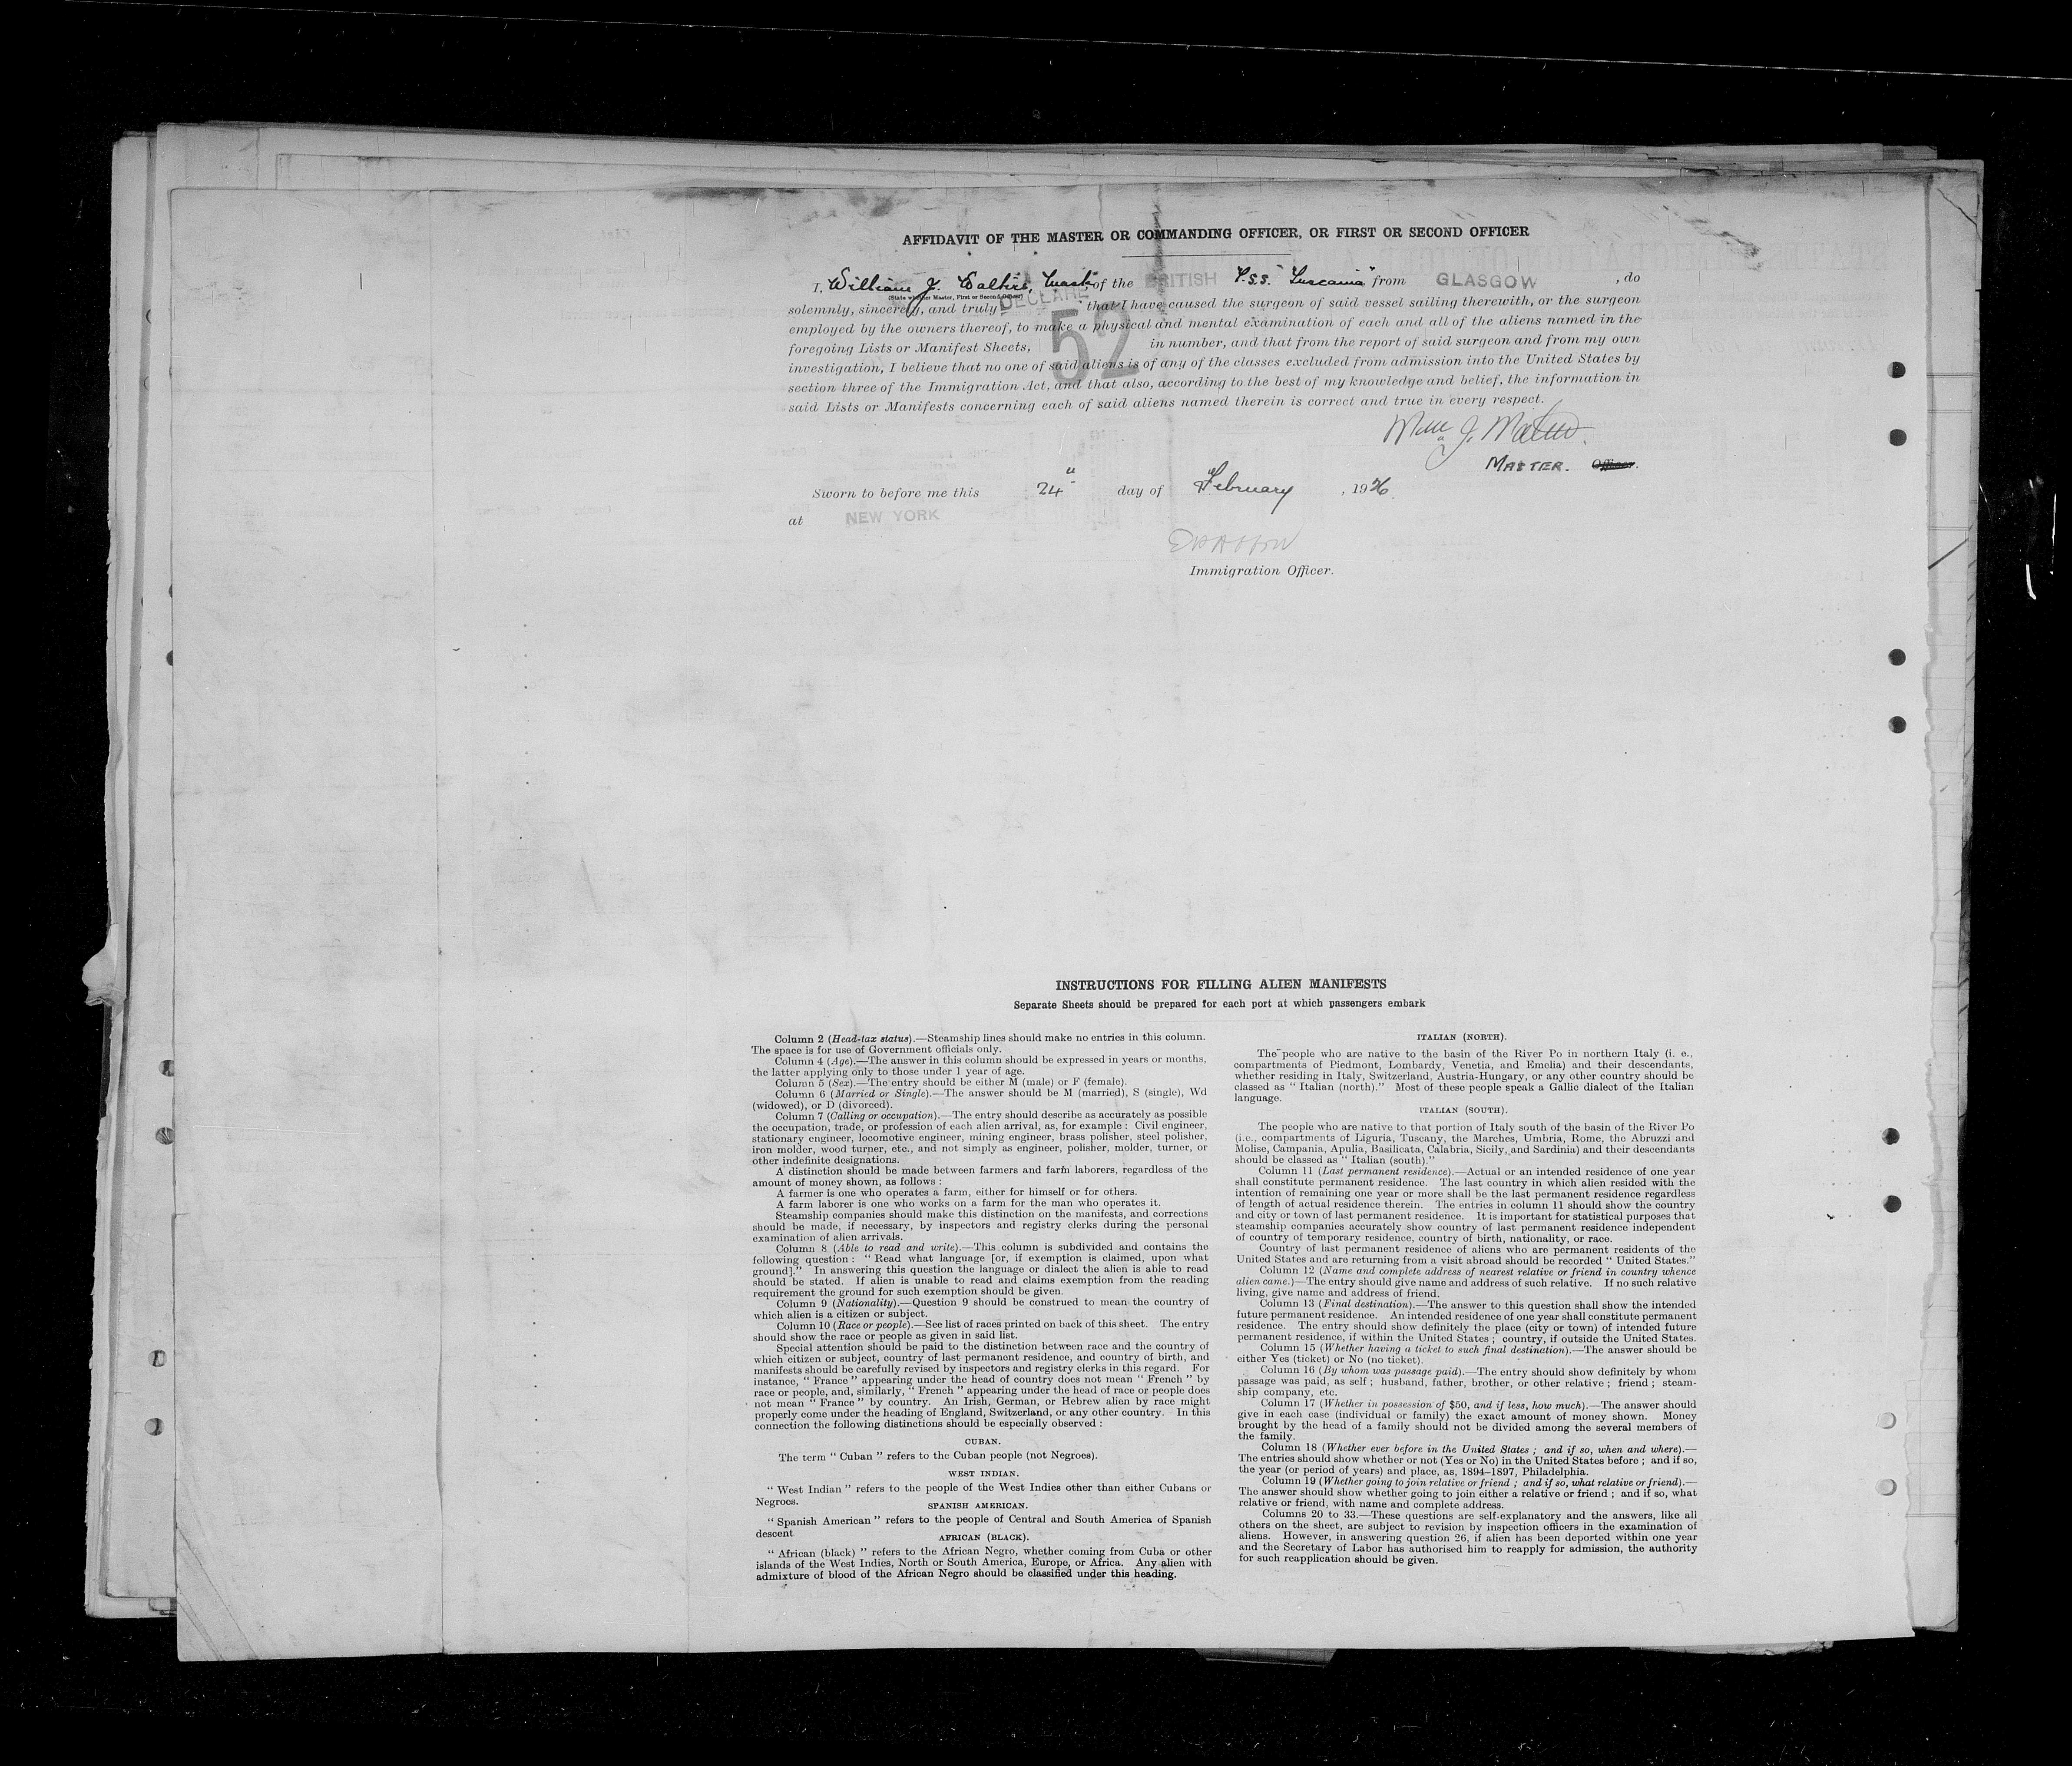 AFFIDAVIT OF THE MASTER OR COMMANDING OFFICER, OR FIRST OR SECOND OFFICER
I, William J. Walters, Mastr of the BRITISH T.S.S. "Tuscania" from GLASGOW, do
(State whether Master, First or Second Officer)
solemnly, sincerely, and truly DECLARE that I have caused the surgeon of said vessel sailing therewith, or the surgeon
employed by the owners thereof, to make a physical and mental examination of each and all of the aliens named in the
foregoing Lists or Manifest Sheets, 52 in number, and that from the report of said surgeon and from my own
investigation, I believe that no one of said aliens is of any of the classes excluded from admission into the United States by
section three of the Immigration Act, and that also, according to the best of my knowledge and belief, the information in
said Lists or Manifests concerning each of said aliens named therein is correct and true in every respect.
Wm J.
MASTER. Officer.
Sworn to before me this 24" day of February, 1926.
at NEW YORK
Immigration Officer.
INSTRUCTIONS FOR FILLING ALIEN MANIFESTS
Separate Sheets should be prepared for each port at which passengers embark
Column 2 (Head-tax status).—Steamship lines should make no entries in this column.
The space is for use of Government officials only.
Column 4 (Age).—The answer in this column should be expressed in years or months,
the latter applying only to those under 1 year of age.
Column 5 (Sex).—The entry should be either M (male) or F (female).
Column 6 (Married or Single).—The answer should be M (married), S (single), Wd
(widowed), or D (divorced).
Column 7 (Calling or occupation).—The entry should describe as accurately as possible
the occupation, trade, or profession of each alien arrival, as, for example : Civil engineer,
stationary engineer, locomotive engineer, mining engineer, brass polisher, steel polisher,
iron molder, wood turner, etc., and not simply as engineer, polisher, molder, turner, or
other indefinite designations.
A distinction should be made between farmers and farm laborers, regardless of the
amount of money shown, as follows :
A farmer is one who operates a farm, either for himself or for others.
A farm laborer is one who works on a farm for the man who operates it.
Steamship companies should make this distinction on the manifests, and corrections
should be made, if necessary, by inspectors and registry clerks during the personal
examination of alien arrivals.
Column 8 (Able to read and write).—This column is subdivided and contains the
following question : " Read what language [or, if exemption is claimed, upon what
ground]." In answering this question the language or dialect the alien is able to read
should be stated. If alien is unable to read and claims exemption from the reading
requirement the ground for such exemption should be given.
Column 9 (Nationality).—Question 9 should be construed to mean the country of
which alien is a citizen or subject.
Column 10 (Race or people).—See list of races printed on back of this sheet. The entry
should show the race or people as given in said list.
Special attention should be paid to the distinction between race and the country of
which citizen or subject, country of last permanent residence, and country of birth, and
manifests should be carefully revised by inspectors and registry clerks in this regard. For
instance, " France " appearing under the head of country does not mean " French " by
race or people, and, similarly, " French " appearing under the head of race or people does
not mean " France " by country. An Irish, German, or Hebrew alien by race might
properly come under the heading of England, Switzerland, or any other country. In this
connection the following distinctions should be especially observed :
CUBAN.
The term " Cuban " refers to the Cuban people (not Negroes).
WEST INDIAN.
" West Indian " refers to the people of the West Indies other than either Cubans or
Negroes.
SPANISH AMERICAN.
" Spanish American " refers to the people of Central and South America of Spanish
descent
AFRICAN (BLACK).
" African (black) " refers to the African Negro, whether coming from Cuba or other
islands of the West Indies, North or South America, Europe, or Africa. Any alien with
admixture of blood of the African Negro should be classified under this heading.
ITALIAN (NORTH).
The people who are native to the basin of the River Po in northern Italy (i. e.,
compartments of Piedmont, Lombardy, Venetia, and Emelia) and their descendants,
whether residing in Italy, Switzerland, Austria-Hungary, or any other country should be
classed as " Italian (north)." Most of these people speak a Gallic dialect of the Italian
language.
ITALIAN (SOUTH).
The people who are native to that portion of Italy south of the basin of the River Po
(i.e., compartments of Liguria, Tuscany, the Marches, Umbria, Rome, the Abruzzi and
Molise, Campania, Apulia, Basilicata, Calabria, Sicily, and Sardinia) and their descendants
should be classed as " Italian (south)."
Column 11 (Last permanent residence).—Actual or an intended residence of one year
shall constitute permanent residence. The last country in which alien resided with the
intention of remaining one year or more shall be the last permanent residence regardless
of length of actual residence therein. The entries in column 11 should show the country
and city or town of last permanent residence. It is important for statistical purposes that
steamship companies accurately show country of last permanent residence independent
of country of temporary residence, country of birth, nationality, or race.
Country of last permanent residence of aliens who are permanent residents of the
United States and are returning from a visit abroad should be recorded " United States."
Column 12 (Name and complete address of nearest relative or friend in country whence
alien came.)—The entry should give name and address of such relative. If no such relative
living, give name and address of friend.
Column 13 (Final destination).—The answer to this question shall show the intended
future permanent residence. An intended residence of one year shall constitute permanent
residence. The entry should show definitely the place (city or town) of intended future
permanent residence, if within the United States ; country, if outside the United States.
Column 15 (Whether having a ticket to such final destination).—The answer should be
either Yes (ticket) or No (no ticket).
Column 16 (By whom was passage paid).—The entry should show definitely by whom
passage was paid, as self ; husband, father, brother, or other relative ; friend ; steam-
ship company, etc.
Column 17 (Whether in possession of $50, and if less, how much).—The answer should
give in each case (individual or family) the exact amount of money shown. Money
brought by the head of a family should not be divided among the several members of
the family.
Column 18 (Whether ever before in the United States ; and if so, when and where).—
The entries should show whether or not (Yes or No) in the United States before ; and if so,
the year (or period of years) and place, as, 1894–1897, Philadelphia.
Column 19 (Whether going to join relative or friend ; and if so, what relative or friend).—
The answer should show whether going to join either a relative or friend ; and if so, what
relative or friend, with name and complete address.
Columns 20 to 33.—These questions are self-explanatory and the answers, like all
others on the sheet, are subject to revision by inspection officers in the examination of
aliens. However, in answering question 26, if alien has been deported within one year
and the Secretary of Labor has authorised him to reapply for admission, the authority
for such reapplication should be given.